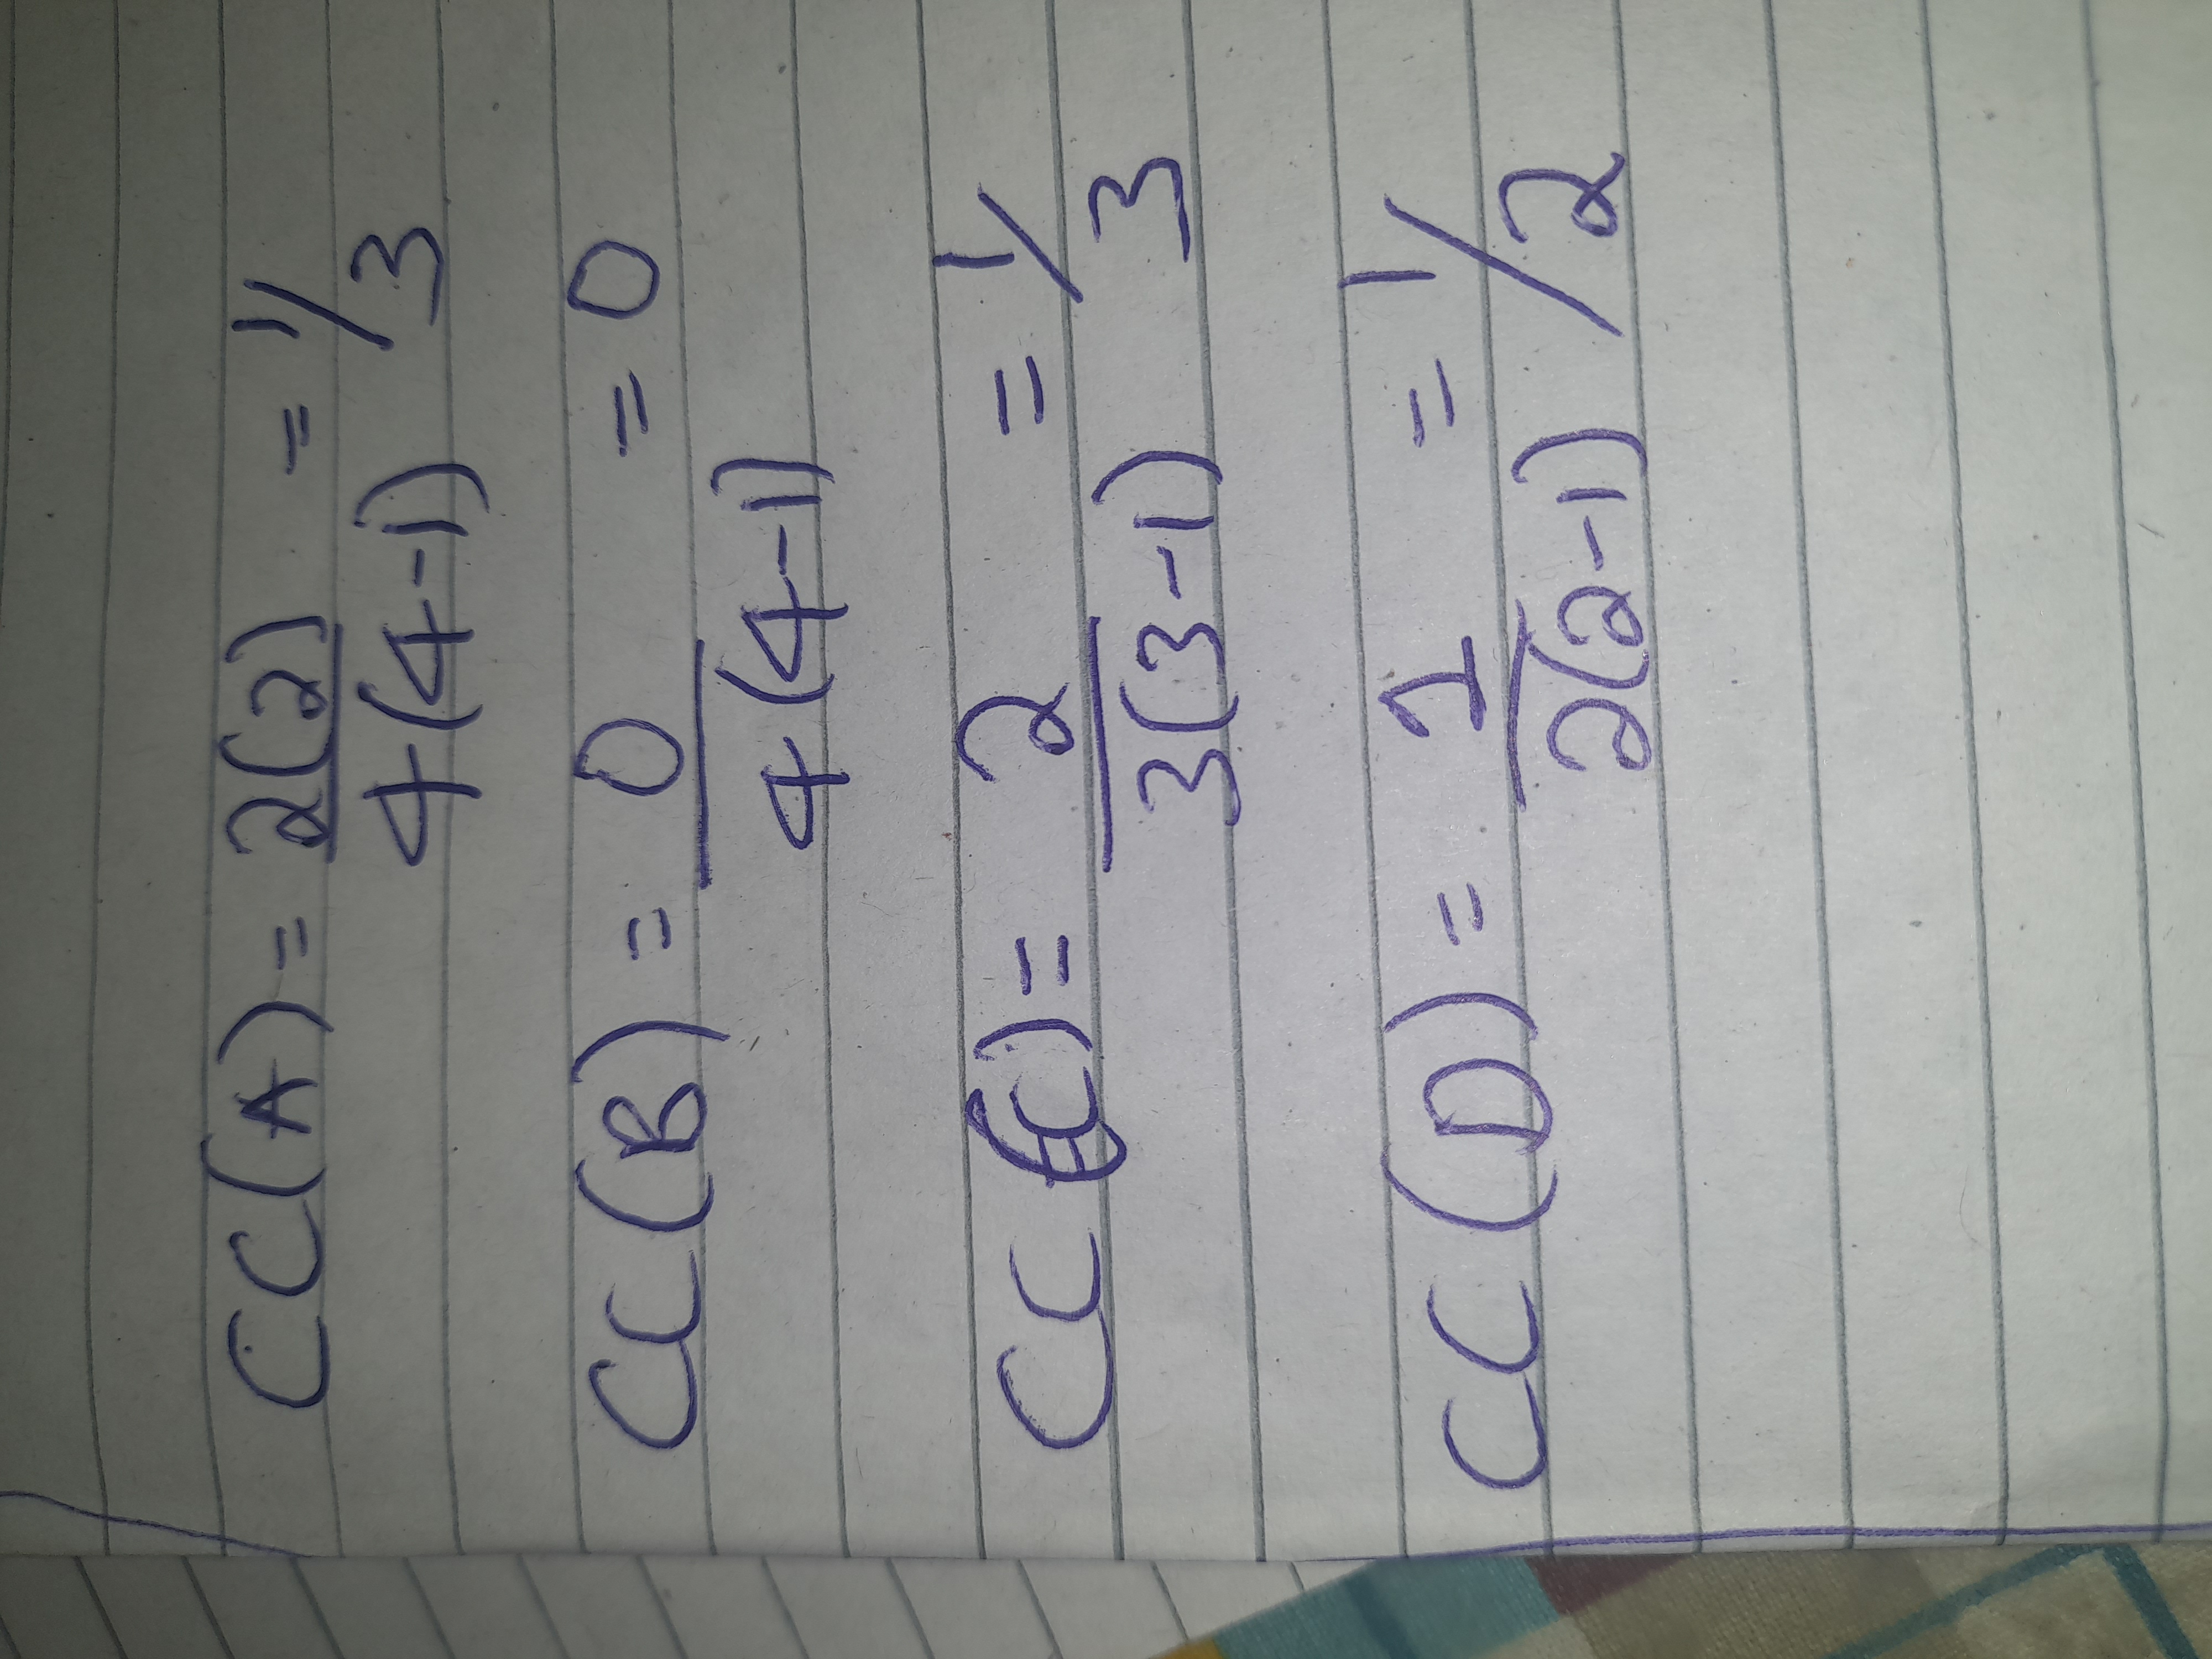 CC(A) = 2(2) / 4(4-1) = 1/3
CC(B) = 0 / 4(4-1) = 0
CC(C) = 2 / 3(3-1) = 1/3
CC(D) = 1 / 2(2-1) = 1/2